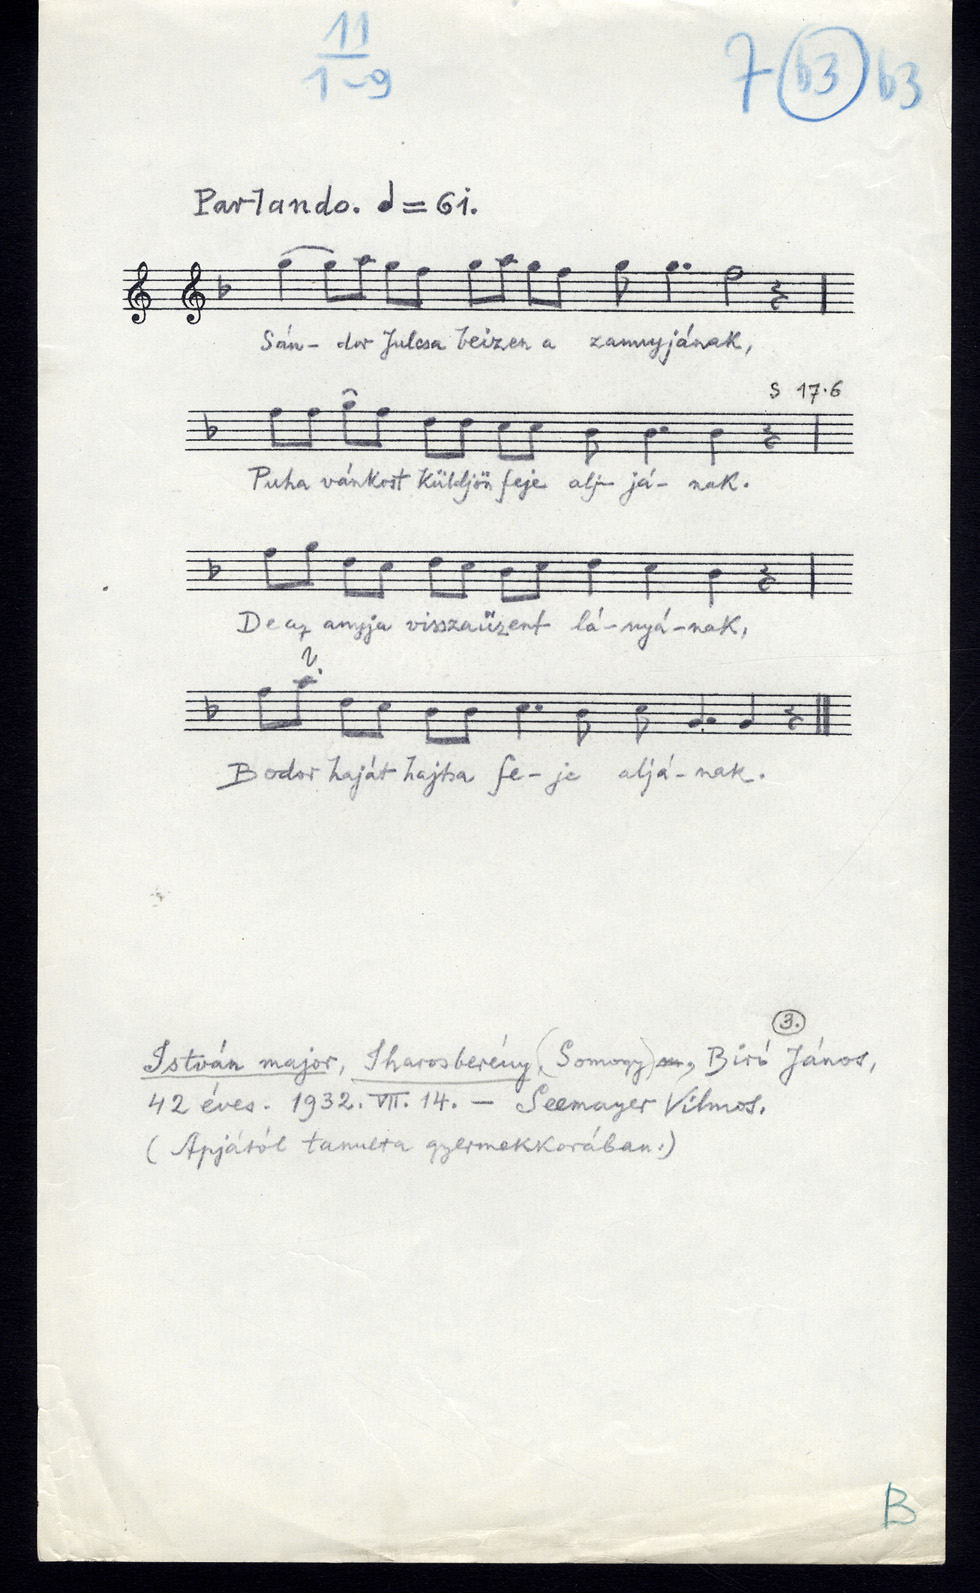 11
1-9
7 b3 b3
Parlando. = 61.
Sán- dor Julcsa beizen a zannyjának,
S 17.6
Puha vánkost küldjön feje alj- já- nak.
De az anyja visszaüzent lá-nyá-nak,
?
Bodor haját hajtsa fe- je aljá-nak.
3.
István major, Iharosberény, (Somogy), Biró János,
42 éves. 1932. VII. 14. - Seemayer Vilmos.
(Apjától tanulta gyermekkorában.)
B